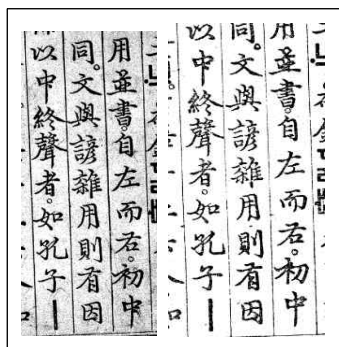 用並書。自左而右。初中
同。文與諺雜用則有因
以中終聲者。如孔子ㅣ
用並書。自左而右。初中
同。文與諺雜用則有因
以中終聲者。如孔子ㅣ